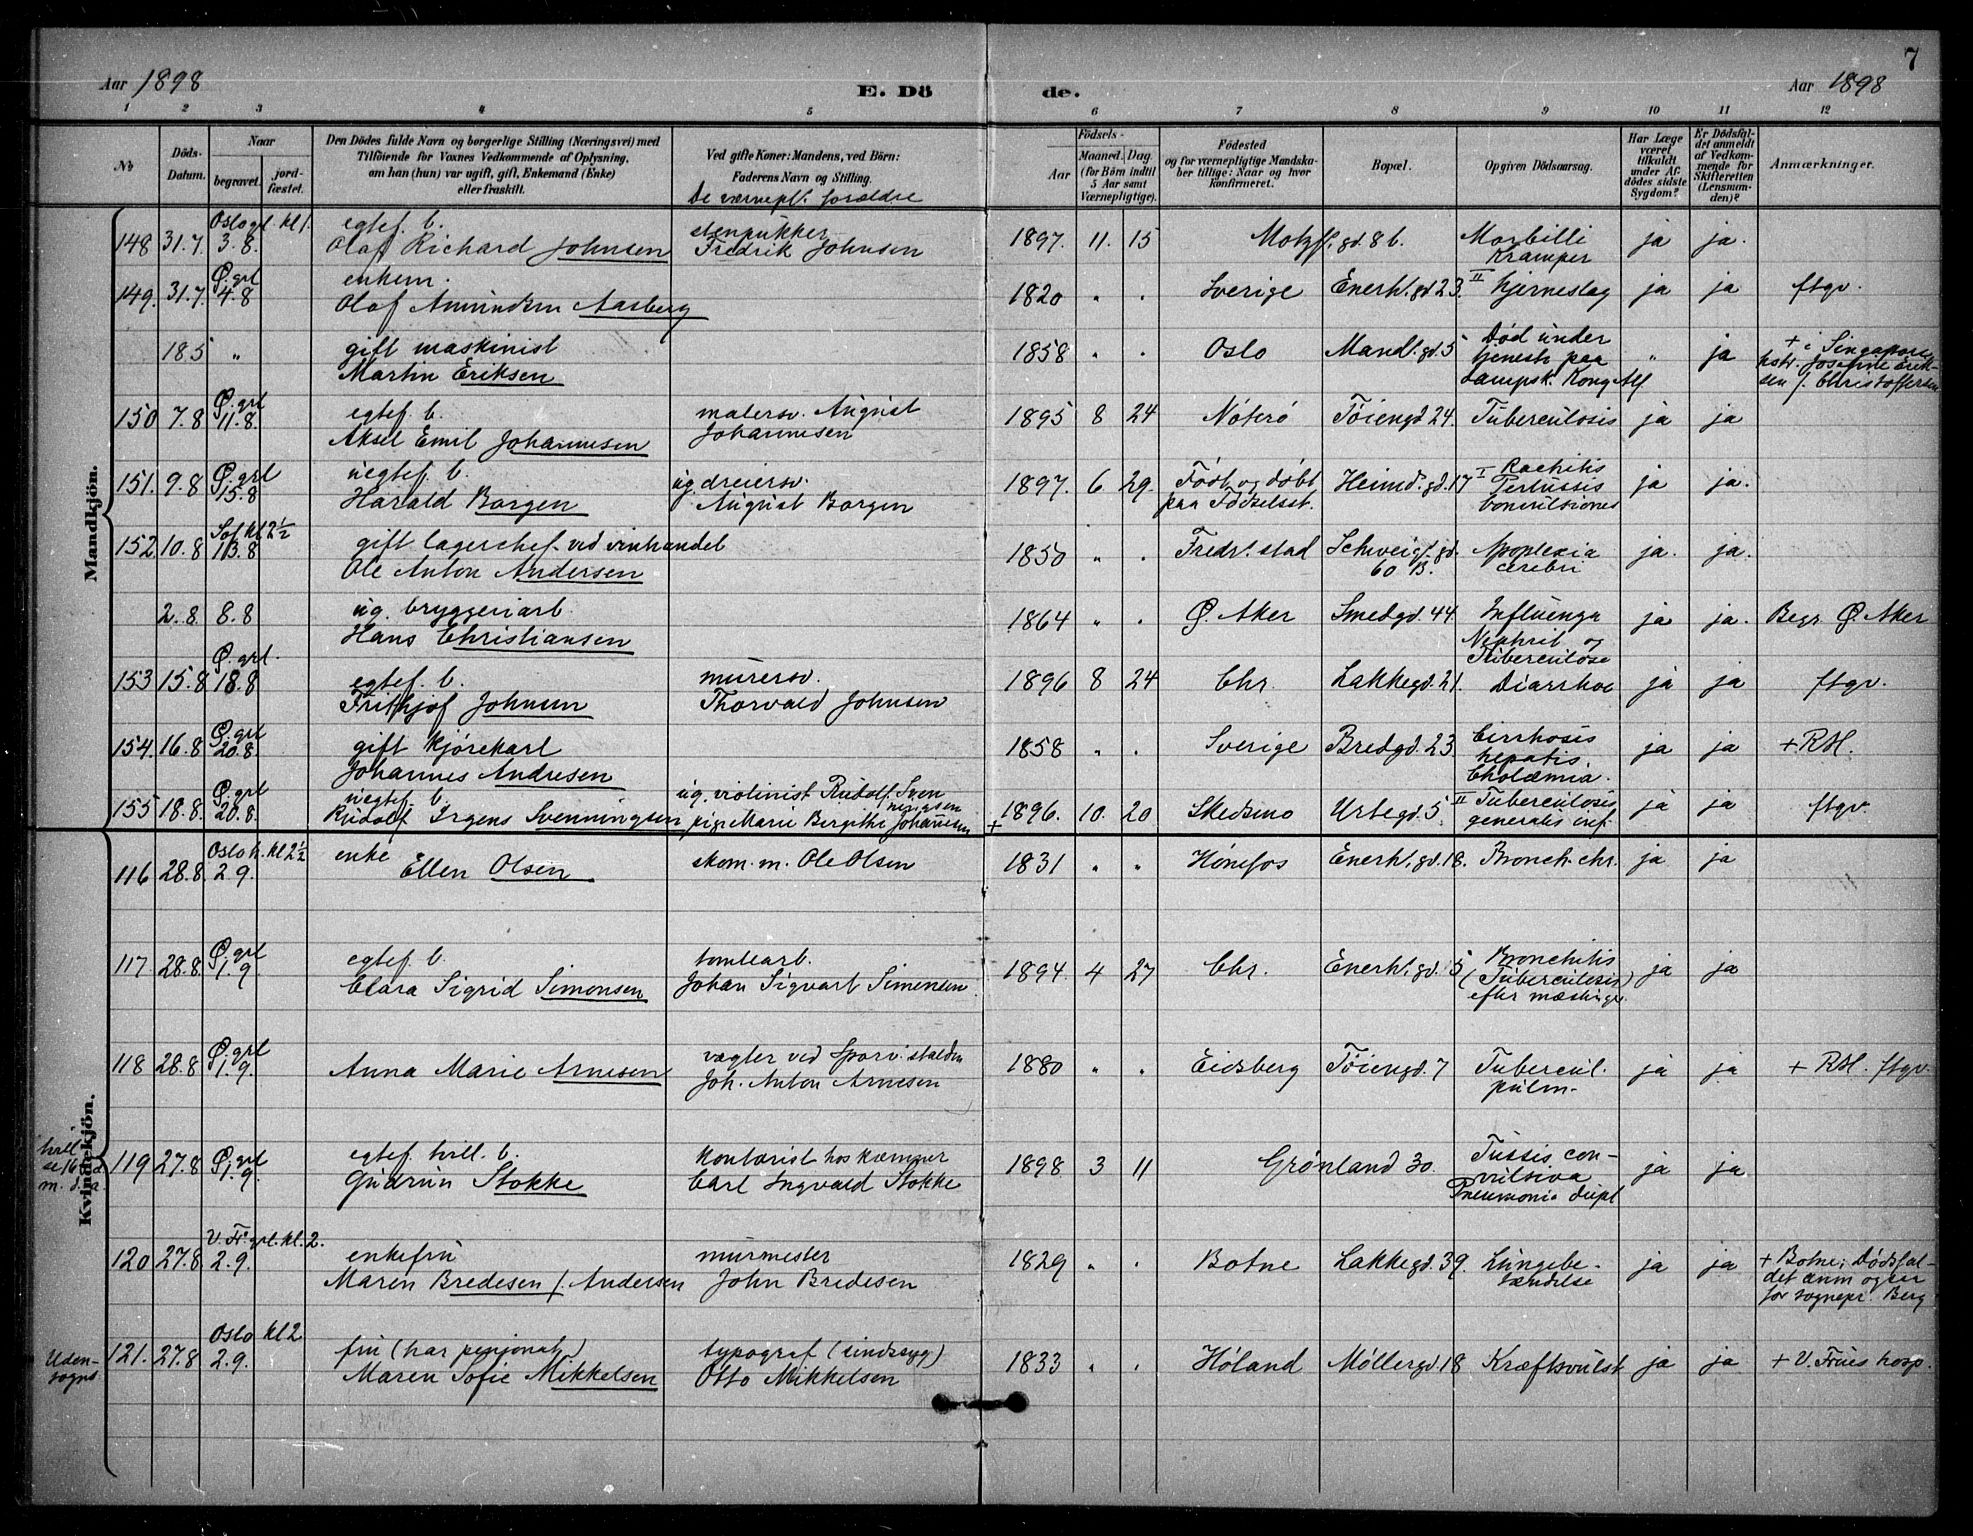 7
Aar 1898
E. Dö
de.
Aar 1898
1 2 3 4 5 6 7 8 9 10 11 12
No
Döds-
Datum.
Naar
begravet.
jord-
fæstet.
Den Dödes fulde Navn og borgerlige Stilling (Næringsvei) med
Tilföiende for Voxnes Vedkommende af Oplysning,
om han (hun) var ugift, gift, Enkemand (Enke)
eller fraskilt.
Ved gifte Koner: Mandens, ved Börn:
Faderens Navn og Stilling.
De værnepl. forældre
Födsels-
Aar
Maaned. Dag.
(for Börn indtil
5 Aar samt
Værnepligtige).
Födested
og for værnepligtige Mandska-
ber tillige: Naar og hvor
konfirmeret.
Bopæl.
Opgiven Dödsaarsag.
Har Læge
været
tilkaldt
under Af-
dödes sidste
Sygdom?
Er Dödsfal-
det anmeldt
af Vedkom-
mende for
Skifteretten
(Lensman-
den)?
Anmærkninger.
Mandkjön.
Oslo gl. kl 1. egtef. b. stenpukker
148 31.7. 3.8. Olaf Richard Johnsen Fredrik Johnsen 1897. 11. 15 Motzf. gd. 8 b. Morbilli ja ja.
Kramper
Ø. grl enkem.
149. 31.7. 4.8 Olaf Amundsen Aasberg 1820 " " Sverige Enerh. gd 23. II hjerneslag ja ja ftgv.
18.5 " gift maskinist 1858 " " Oslo Mandl. gd. 5 Död under " ja + i Singapore
Martin Eriksen tjeneste paa hstr. Josefine Erik-
Dampsk. Kong Alf sen f. Christoffersen
Ø. grl egtef. b. malersv. August
150 7.8 11.8. Aksel Emil Johannesen Johannesen 1895 8 24 Nöterö Töiengd 24. Tuberculosis ja ja
Ø. grl uegtef. b. ug. dreiersv. I Rachitis
151. 9.8 15.8 Harald Borgen August Borgen 1897. 6 29. Född og döbt Heimd. gd. 17 Pertussis ja ja.
paa Födselsst. Convulsiones
Sof. kl 2½ gift lagerchef ved vinhandel
152 10.8 13.8 Ole Anton Andersen 1850 " " Fredr. stad Schweig. gd. Apoplexia ja. ja.
60 B. cerebri
2.8. 8.8 ug. bryggeriarb. 1864 " " Ø. Aker Smedgd. 44. Influenza ja ja. Begr. Ø. Aker
Hans Christiansen Nephrit og
Tuberculose
Ø. grl.
153 15.8 18.8 egtef. b. murersv. 1896 8 24 Chr. Lakkegd. 21. Diarrhoe ja ja ftgv.
Frithjof Johnsen Thorvald Johnsen
Ø. grl
154. 16.8 20.8. gift kjörekarl 1858 " " Sverige Bredgd. 23 Cirrhosis ja ja + RH.
Johannes Andresen hepatis.
Cholæmia.
Ø. grl uegtef. b. ug. violinist Rudolf Sven
ningsen
155 18.8. 20.8. Rudolf Jrgens Svenningsen pige Marie Bergithe Johansen + 1896. 10. 20 Skedsmo Urtegd. 5 II Tuberculosis ja ja ftgv.
generalis inf.
Kvindekjön.
Oslo k. kl 2½ enke
116 28.8. 2.9. Ellen Olsen skom. m. Ole Olsen 1831 " " Hönefos Enerh. gd. 18. Bronch. chr. ja ja
Ø. grl egtef. b. tomtearb. Bronchitis
117. 28.8. 1.9 Clara Sigrid Simonsen Johan Sigvart Simensen 1894. 4 27 Chr. Enerh. gd. 5 (Tuberculosis) ja ja
efter mæslinger.
Ø. grl vægter ved Sporv. stalden
118 28.8 1.9. Anna Marie Arnesen Joh. Anton Arnesen 1880 " " Eidsberg Töiengd. 7 Tubercul. ja ja + RH. ftgv.
pulm.
tvill.
se 16
Ø. grl egtef. tvill. b. kontorist hos kæmner Tussis con-
119 27.8 1.9. Gudrun Stokke Carl Ingvald Stokke 1898 3 11 Grönland 30 vulsiva ja ja
Pneumonia dupl
V. Fr. grl. kl. 2. enkefru murmester
120 27.8 2.9. Maren Bredesen f. Andersen John Bredesen 1829 " " Botne Lakkegd. 39. Lungebe- ja ja + Botne; Dödsfal-
tændelse det anm ogsaa
for sognepr. Berg
Oslo kl 2
Uden-
sogns
121. 27.8 2.9. fru (har penjonat) typograf (sindssyg) 1833 " " Höland Möllergd. 18 Kræftsvulst ja ja + V. Frues hosp.
Maren Sofie Mikkelsen Otto Mikkelsen